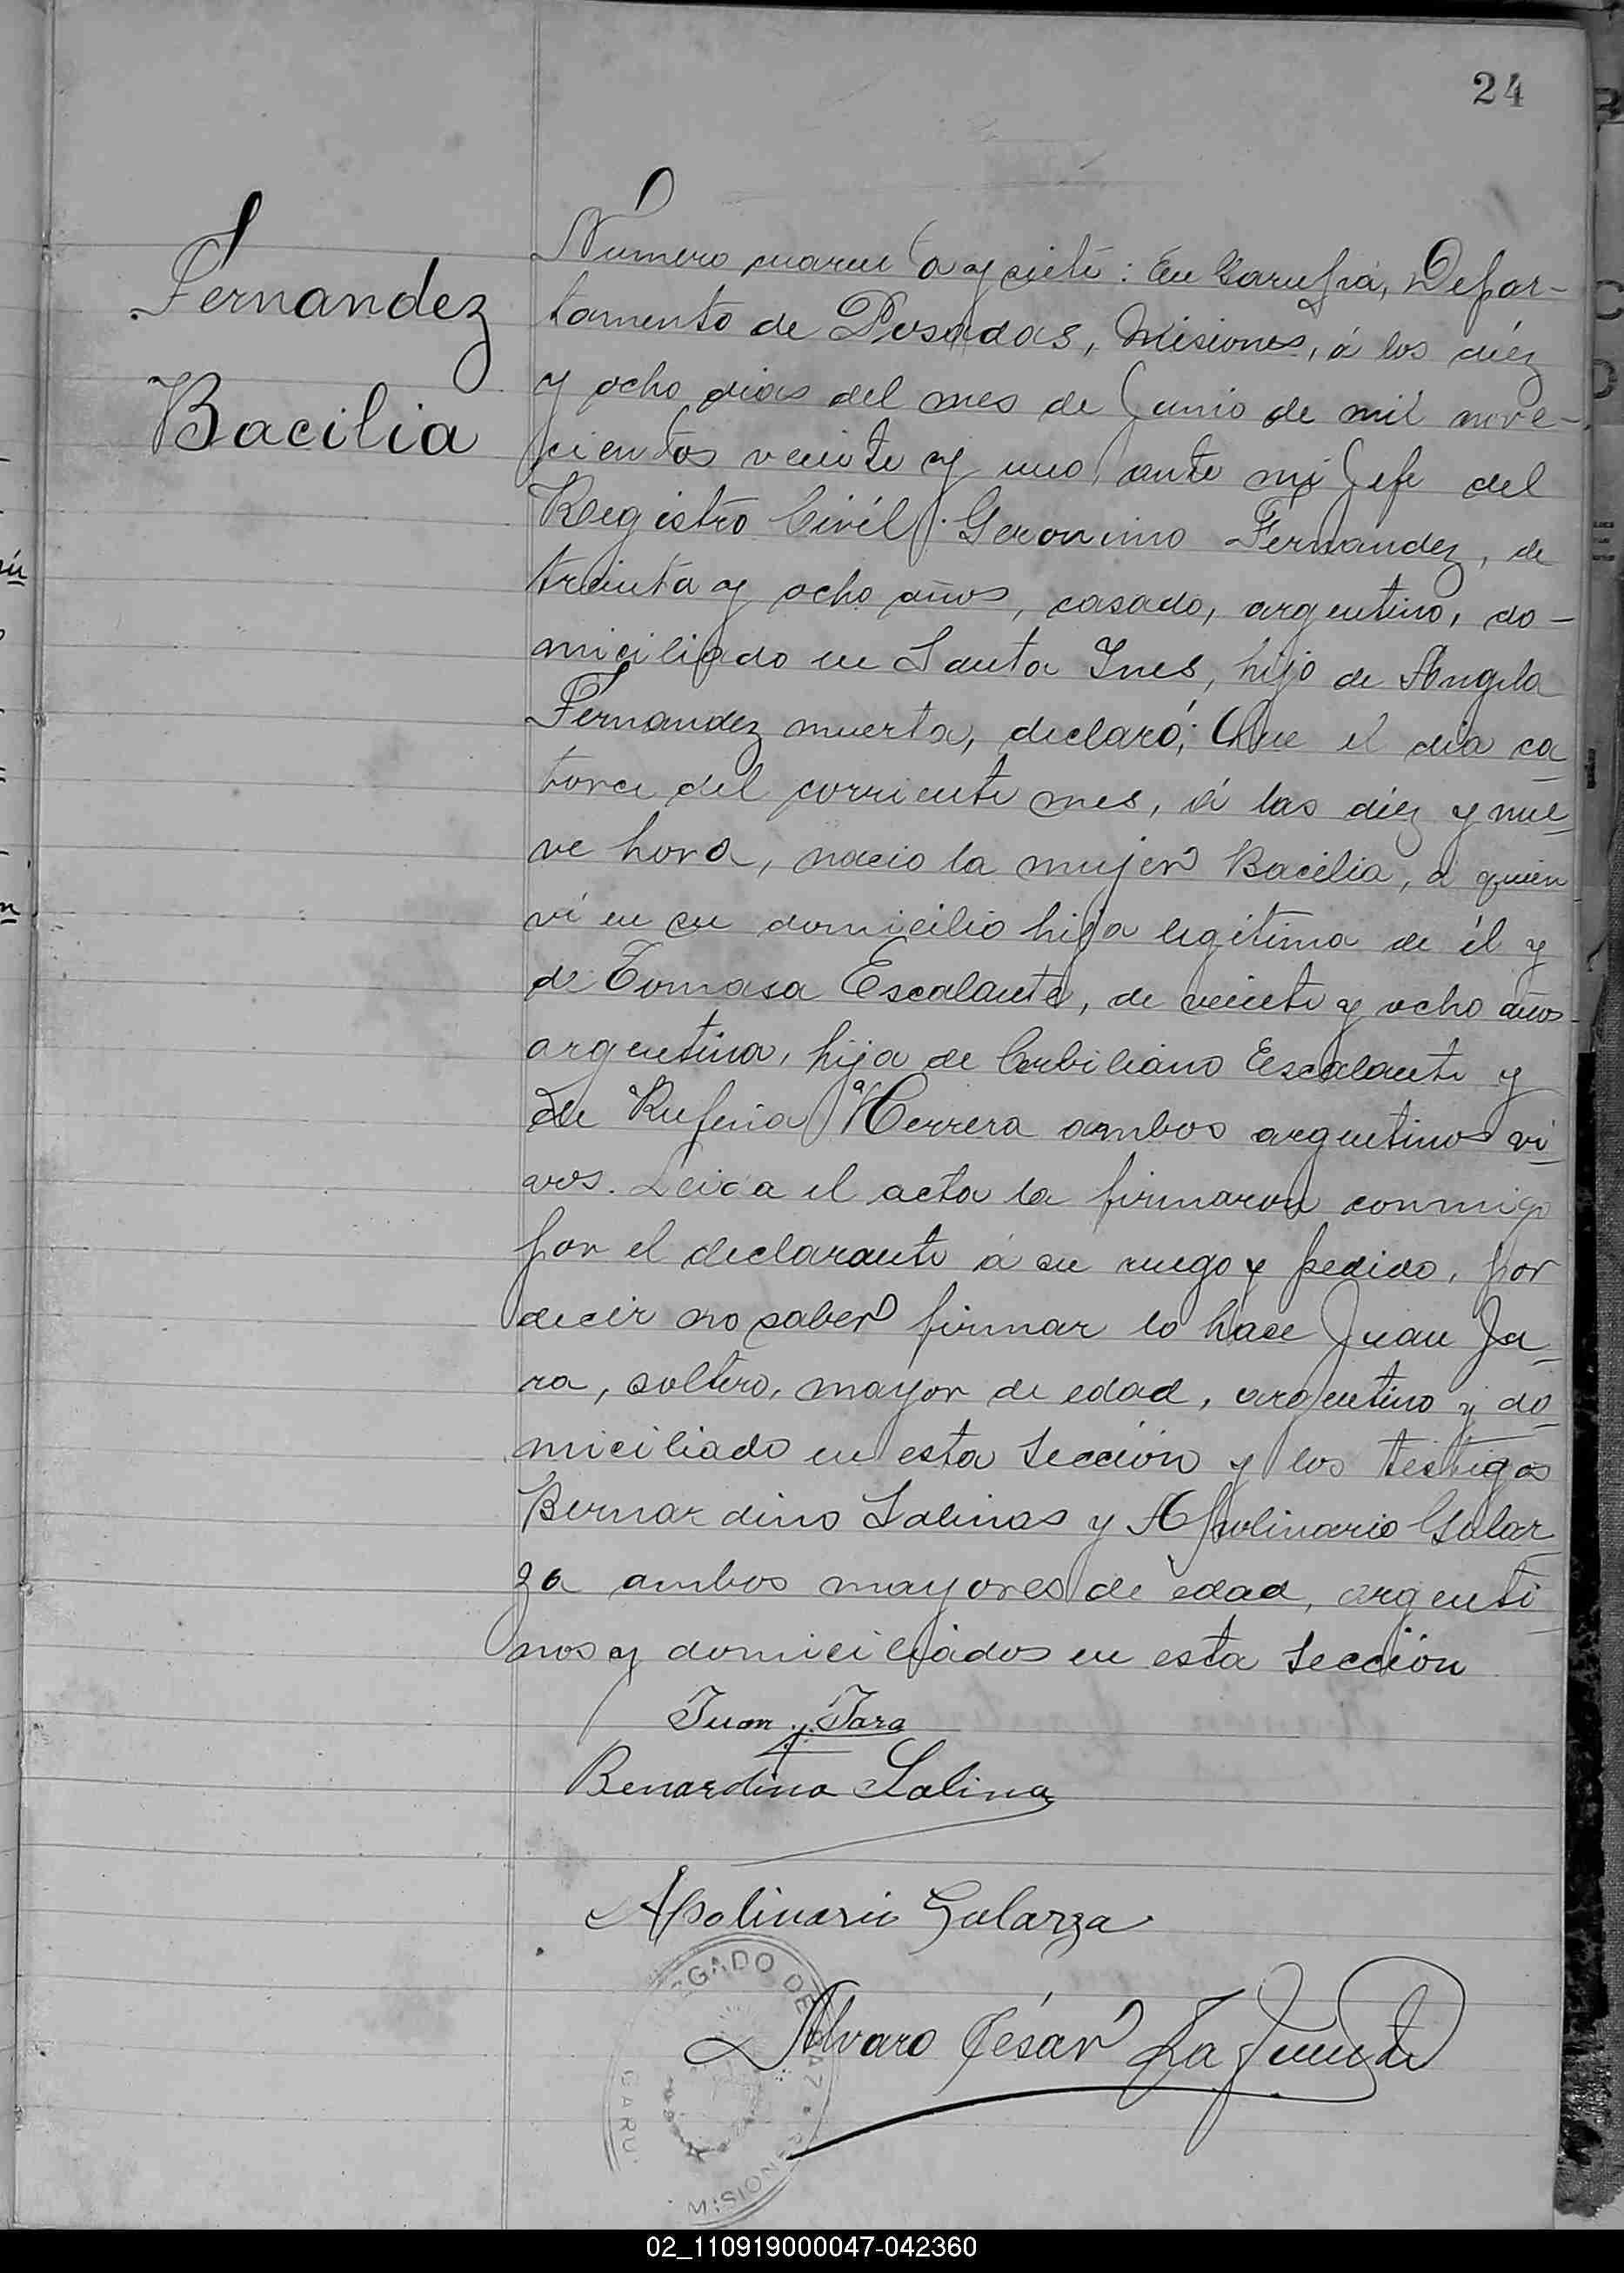 24
Fernandez
Bacilia
Número cuarenta y siete: En Garupá, Depar-
tamento de Posadas, Misiones, á los diéz
y ocho dias del mes de Junio de mil nove-
cientos veinte y uno, ante mi Jefe del
Registro Civil, Geronimo Fernandez, de
treinta y ocho años, casado, argentino, do-
miciliado en Santa Ines, hijo de Angela
Fernandez muerta, declaró: Que el dia ca-
torce del corriente mes, á las diéz y nue-
ve hora, nacio la mujer Bacilia, á quien
ví en su domicilio hija legitima de él y
de Tomasa Escalante, de veinte y ocho años
argentina, hija de Escalante y
de Rufina Herrera ambos argentinos vi-
vos. Leida el acta la firmaron conmigo
por el declarante á su ruego y pedido, por
decir no saber firmar lo hace Juan Ja-
ra, soltero, mayor de edad, argentino y do-
miciliado en esta Sección y los testigos
Bernardino Salinas y Apolinario Galar-
za ambos mayores de edad, argenti-
nos y domiciliados en esta Sección
Juan y Jara
Benardino Salina
Apolinario Galarza
Alvaro César La Fuente
JUZGADO DE PAZ
GARU
MISIONES
02_110919000047-042360